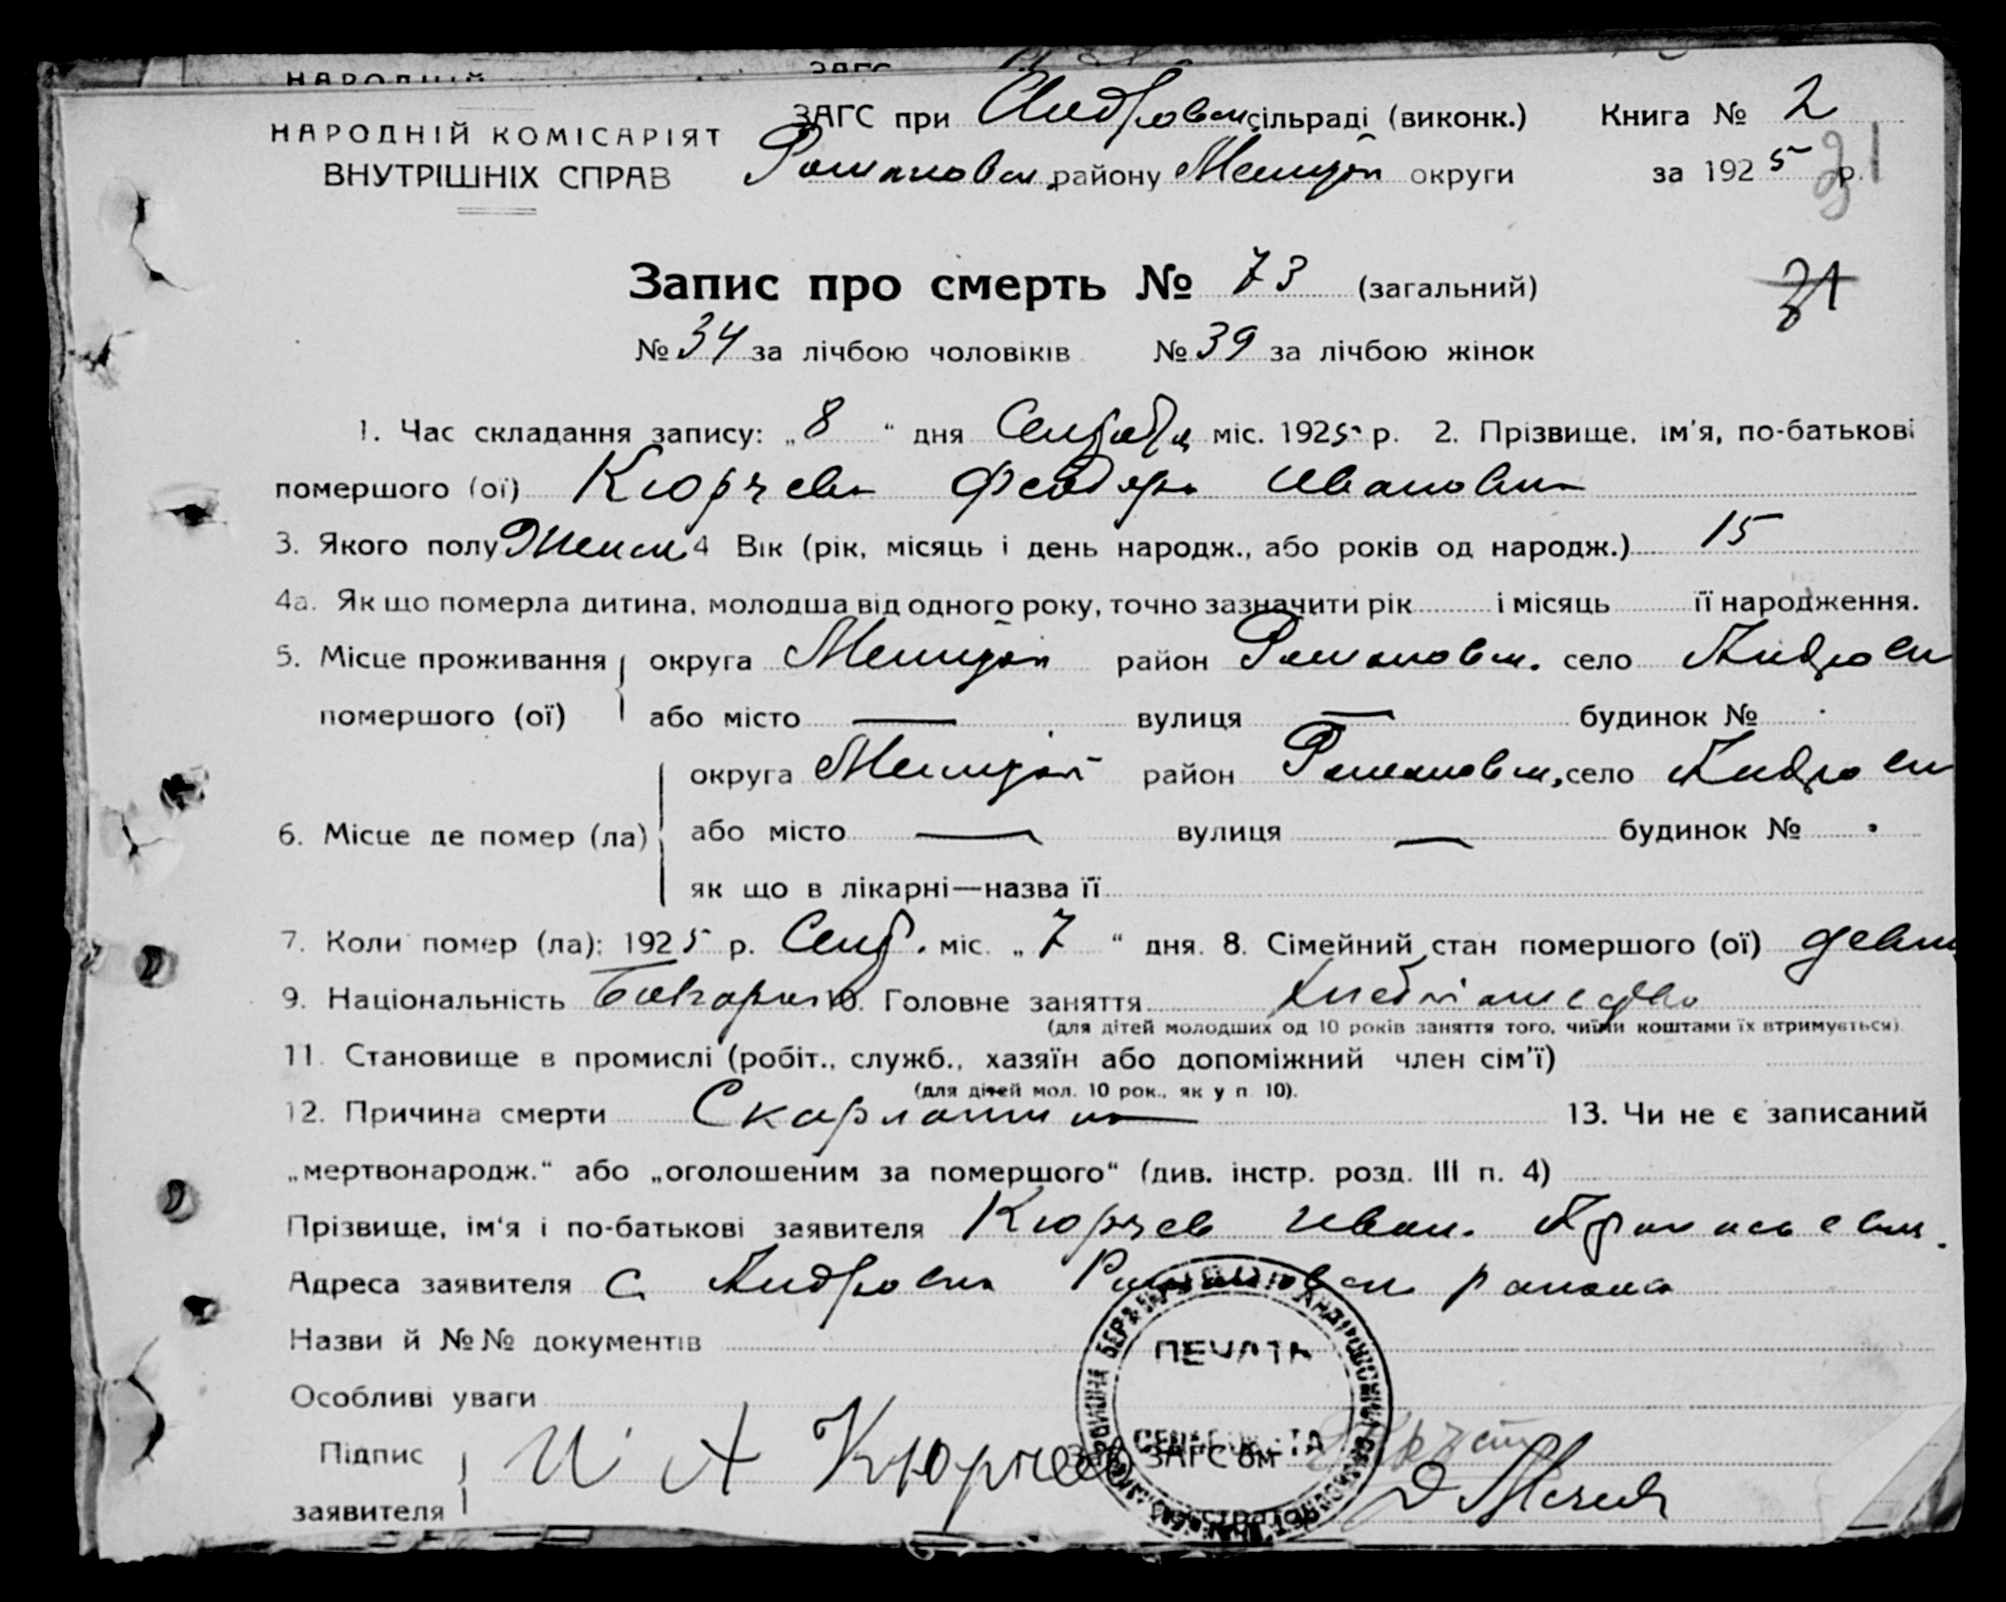 ЗАГС при Андровск сільраді (виконк.) Книга № 2
НАРОДНІЙ КОМІСАРІЯТ
ВНУТРІШНІХ СПРАВ
Романовск. району Мелитоп округи за 1925 р.
31
Запис про смерть № 73 (загальний)
31
№ 34 за лічбою чоловіків № 39 за лічбою жінок
1. Час складання запису: „8“ дня Сентября міс. 1925 р. 2. Прізвище, ім'я, по-батькові
помершого (ої) Кюрчева Феодора Ивановна
3. Якого полу Женск 4 Вік (рік, місяць і день народж., або років од народж.) 15
4а. Як що померла дитина, молодша від одного року, точно зазначити рік і місяць її народження.
5. Місце проживання округа Мелитоп район Романовск. село Андровк
помершого (ої) або місто — вулиця — будинок №
округа Мелитоп район Романовск, село Андровк
6. Місце де помер (ла) або місто — вулиця — будинок №
як що в лікарні—назва її
7. Коли помер (ла): 1925 р. Сент. міс. „7“ дня. 8. Сімейний стан помершого (ої) девиц
9. Національність Болгарка 10. Головне заняття Хлебопашество
(для дітей молодших од 10 років заняття того, чиїми коштами їх втримується)
11. Становище в промислі (робіт., служб., хазяїн або допоміжний член сім'ї)
(для дітей мол. 10 рок., як у п. 10).
12. Причина смерти Скарлатина 13. Чи не є записаний
„мертвонародж.“ або „оголошеним за помершого“ (див. інстр. розд. III п. 4)
Прізвище, ім'я і по-батькові заявителя Кюрчев Иван. Афанасьевич.
Адреса заявителя С Андровка Романовск района
Назви й №№ документів
ПЕЧАТА
Особливі уваги
Підпис И А Кюрчев Зав. ЗАГС'ом
заявителя